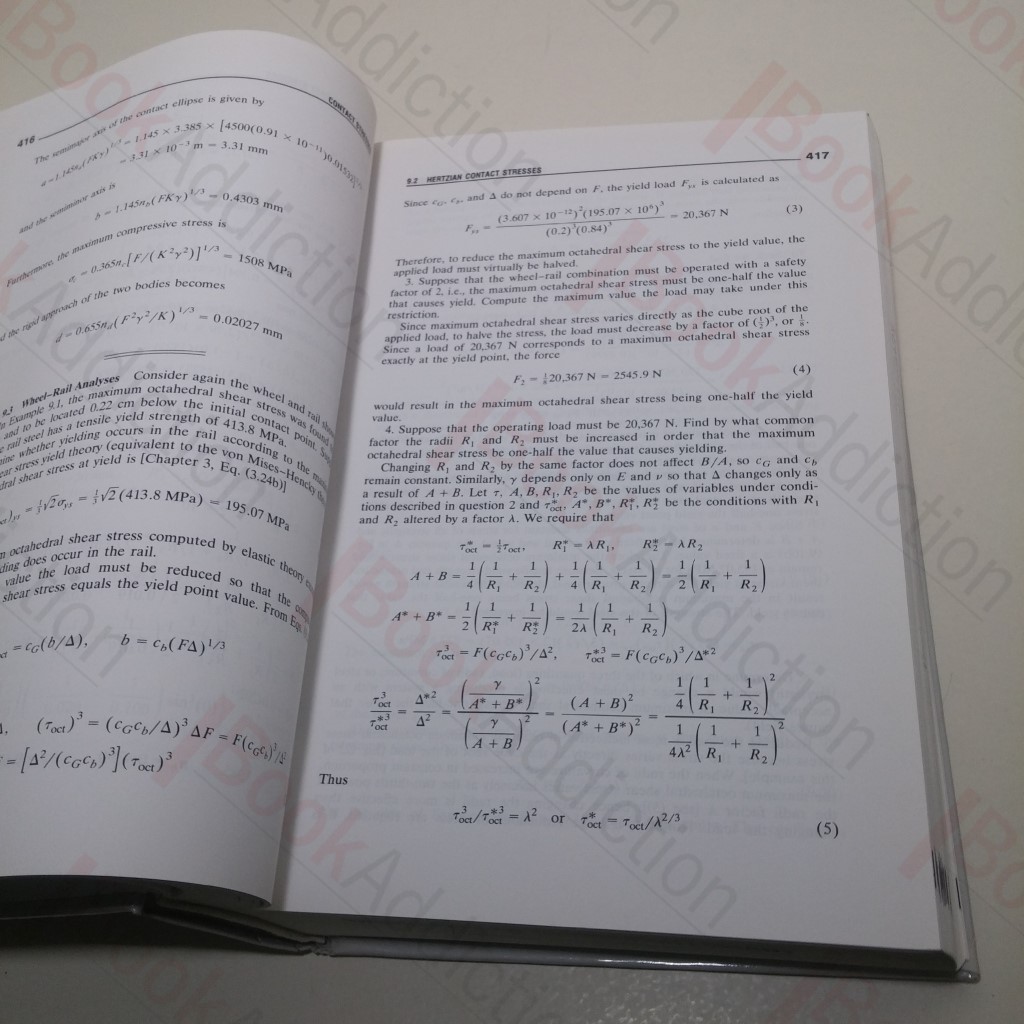 416
CONTACT
The semimajor axis of the contact ellipse is given by
a = 1.145nₐ(FKγ)^1/3 = 1.145 × 3.385 × [4500(0.91 × 10⁻¹¹)0.01532]
= 3.31 × 10⁻³ m = 3.31 mm
and the semiminor axis is
b = 1.145n_b(FKγ)^1/3 = 0.4303 mm
Furthermore, the maximum compressive stress is
σ_c = 0.365n_c[F/(K²γ²)]^1/3 = 1508 MPa
the rigid approach of the two bodies becomes
d = 0.655n_d(F²γ²/K)^1/3 = 0.02027 mm
9.3 Wheel–Rail Analyses Consider again the wheel and rail
In Example 9.1, the maximum octahedral shear stress was found
and to be located 0.22 cm below the initial contact point.
rail steel has a tensile yield strength of 413.8 MPa.
whether yielding occurs in the rail according to the
stress yield theory (equivalent to the von Mises–Hencky
shear stress at yield is [Chapter 3, Eq. (3.24b)]
= ⅓√2σ_ys = ⅓√2 (413.8 MPa) = 195.07 MPa
octahedral shear stress computed by elastic theory
does occur in the rail.
value the load must be reduced so that the
shear stress equals the yield point value. From
= c_G(b/Δ), b = c_b(FΔ)^1/3
(τ_oct)³ = (c_G c_b/Δ)³ ΔF = F(c_G c_b)³/Δ²
= [Δ²/(c_G c_b)³](τ_oct)³
9.2 HERTZIAN CONTACT STRESSES
417
Since c_G, c_b, and Δ do not depend on F, the yield load F_ys is calculated as
F_ys = (3.607 × 10⁻¹²)²(195.07 × 10⁶)³ / (0.2)³(0.84)³ = 20,367 N (3)
Therefore, to reduce the maximum octahedral shear stress to the yield value, the
applied load must virtually be halved.
3. Suppose that the wheel–rail combination must be operated with a safety
factor of 2, i.e., the maximum octahedral shear stress must be one-half the value
that causes yield. Compute the maximum value the load may take under this
restriction.
Since maximum octahedral shear stress varies directly as the cube root of the
applied load, to halve the stress, the load must decrease by a factor of (½)³, or ⅛.
Since a load of 20,367 N corresponds to a maximum octahedral shear stress
exactly at the yield point, the force
F₂ = ⅛20,367 N = 2545.9 N (4)
would result in the maximum octahedral shear stress being one-half the yield
value.
4. Suppose that the operating load must be 20,367 N. Find by what common
factor the radii R₁ and R₂ must be increased in order that the maximum
octahedral shear stress be one-half the value that causes yielding.
Changing R₁ and R₂ by the same factor does not affect B/A, so c_G and c_b
remain constant. Similarly, γ depends only on E and ν so that Δ changes only as
a result of A + B. Let τ, A, B, R₁, R₂ be the values of variables under condi-
tions described in question 2 and τ*_oct, A*, B*, R₁*, R₂* be the conditions with R₁
and R₂ altered by a factor λ. We require that
τ*_oct = ½τ_oct, R₁* = λR₁, R₂* = λR₂
A + B = 1/4 (1/R₁ + 1/R₂) + 1/4 (1/R₁ + 1/R₂) = 1/2 (1/R₁ + 1/R₂)
A* + B* = 1/2 (1/R₁* + 1/R₂*) = 1/2λ (1/R₁ + 1/R₂)
τ³_oct = F(c_G c_b)³/Δ², τ*³_oct = F(c_G c_b)³/Δ*²
τ³_oct/τ*³_oct = Δ*²/Δ² = (γ/(A* + B*))² / (γ/(A + B))² = (A + B)²/(A* + B*)² = 1/4 (1/R₁ + 1/R₂)² / 1/4λ² (1/R₁ + 1/R₂)²
Thus
τ³_oct/τ*³_oct = λ² or τ*_oct = τ_oct/λ^2/3 (5)
BookAddiction